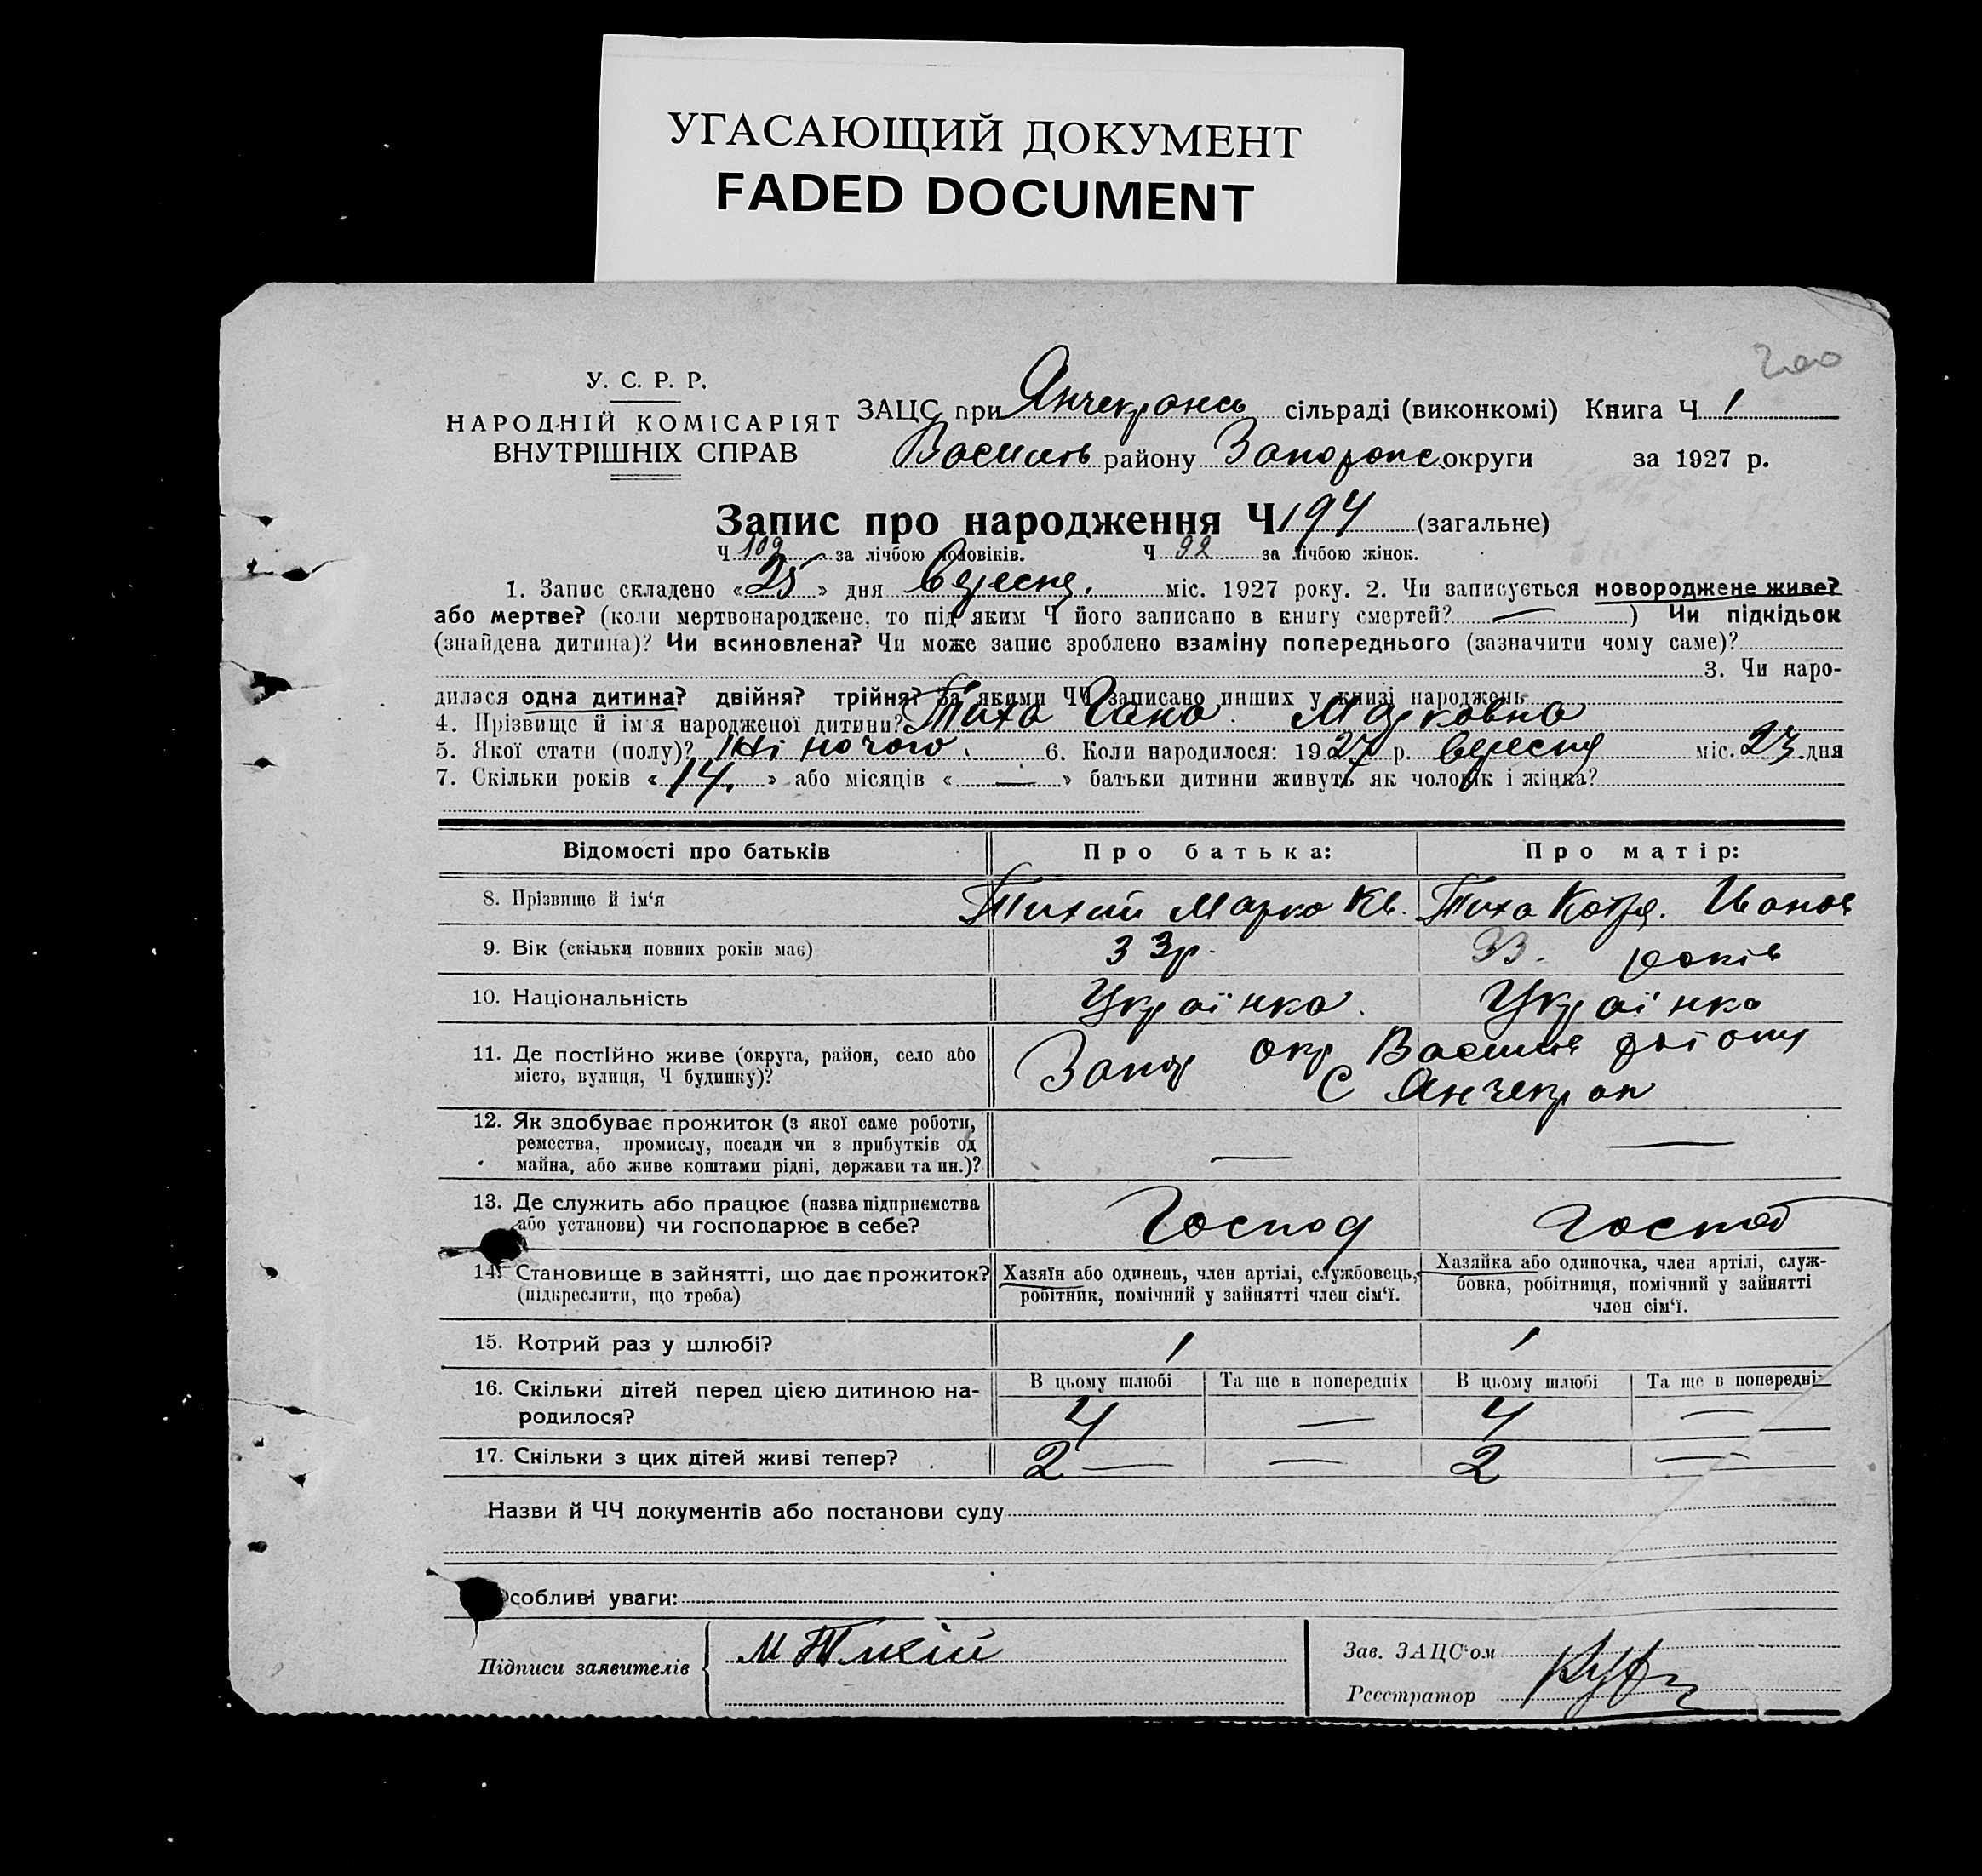 УГАСАЮЩИЙ ДОКУМЕНТ
FADED DOCUMENT
200
У. С. Р. Р.
НАРОДНІЙ КОМІСАРІЯТ
ВНУТРІШНІХ СПРАВ
ЗАЦС при Янчекрансь сільраді (виконкомі) Книга Ч 1
Василів району Запоріжс округи за 1927 р.
Запис про народження Ч 194 (загальне)
Ч 102 за лічбою чоловіків. Ч 92 за лічбою жінок.
1. Запис складено «25» дня Вересня. міс. 1927 року. 2. Чи записується новороджене живе?
або мертве? (коли мертвонароджене, то під яким Ч його записано в книгу смертей? — ) Чи підкідьок
(знайдена дитина)? Чи всиновлена? Чи може запис зроблено взаміну попереднього (зазначити чому саме)?
3. Чи наро-
дилася одна дитина? двійня? трійня? За якими ЧЧ записано инших у книзі народжень
4. Прізвище й ім'я народженої дитини? Тиха Гана Марковна
5. Якої стати (полу)? Жіночого. 6. Коли народилося: 1927 р. Вересня міс. 23 дня
7. Скільки років «14» або місяців «—» батьки дитини живуть як чоловік і жінка?
Відомості про батьків
Про батька:
Про матір:
8. Прізвище й ім'я
Тихий Марко Кв.
Тиха Катря. Іванов
9. Вік (скільки повних років має)
33р.
33. років
10. Національність
Українка.
Українка
11. Де постійно живе (округа, район, село або
місто, вулиця, Ч будинку)?
Запор окр Василів району
С Янчекрак
12. Як здобуває прожиток (з якої саме роботи,
ремества, промислу, посади чи з прибутків од
майна, або живе коштами рідні, держави та ин.)?
—
—
13. Де служить або працює (назва підприємства
або установи) чи господарює в себе?
Господ
Господ
14. Становище в зайнятті, що дає прожиток?
(підкреслити, що треба)
Хазяїн або одинець, член артілі, службовець,
робітник, помічний у зайнятті член сім'ї.
Хазяйка або одиночка, член артілі, служ-
бовка, робітниця, помічний у зайнятті
член сім'ї.
15. Котрий раз у шлюбі?
1
1
16. Скільки дітей перед цією дитиною на-
родилося?
В цьому шлюбі
Та ще в попередніх
В цьому шлюбі
Та ще в попередні
4 — 4 —
17. Скільки з цих дітей живі тепер?
2 — — 2 —
Назви й ЧЧ документів або постанови суду
Особливі уваги:
Підписи заявителів
М Тихій
Зав. ЗАЦС'ом
Реєстратор